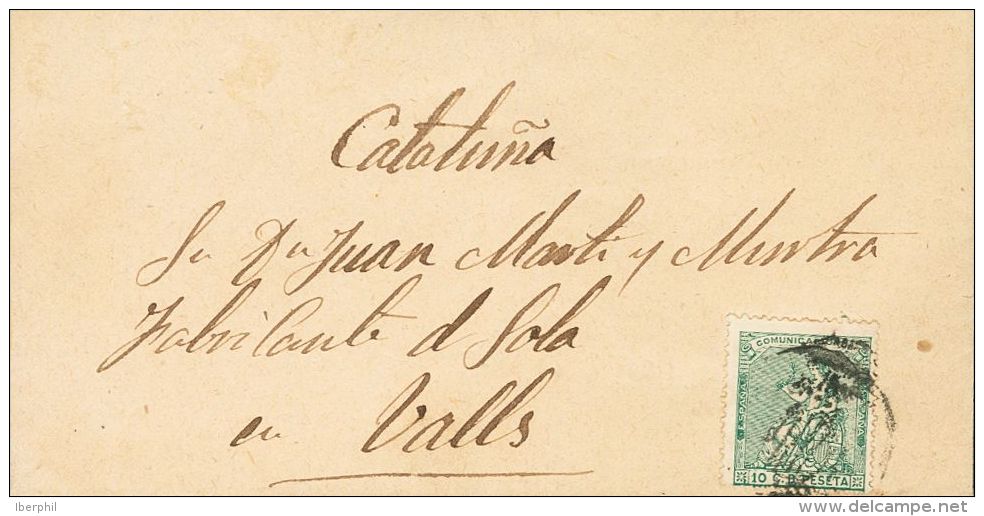 Cataluña
Sr Dn Juan Martí y Mestra
Fabricante d Sola
en Valls
COMUNICA
ESPAÑA
10 C. D PESETA
Iberphil
delcampe.net